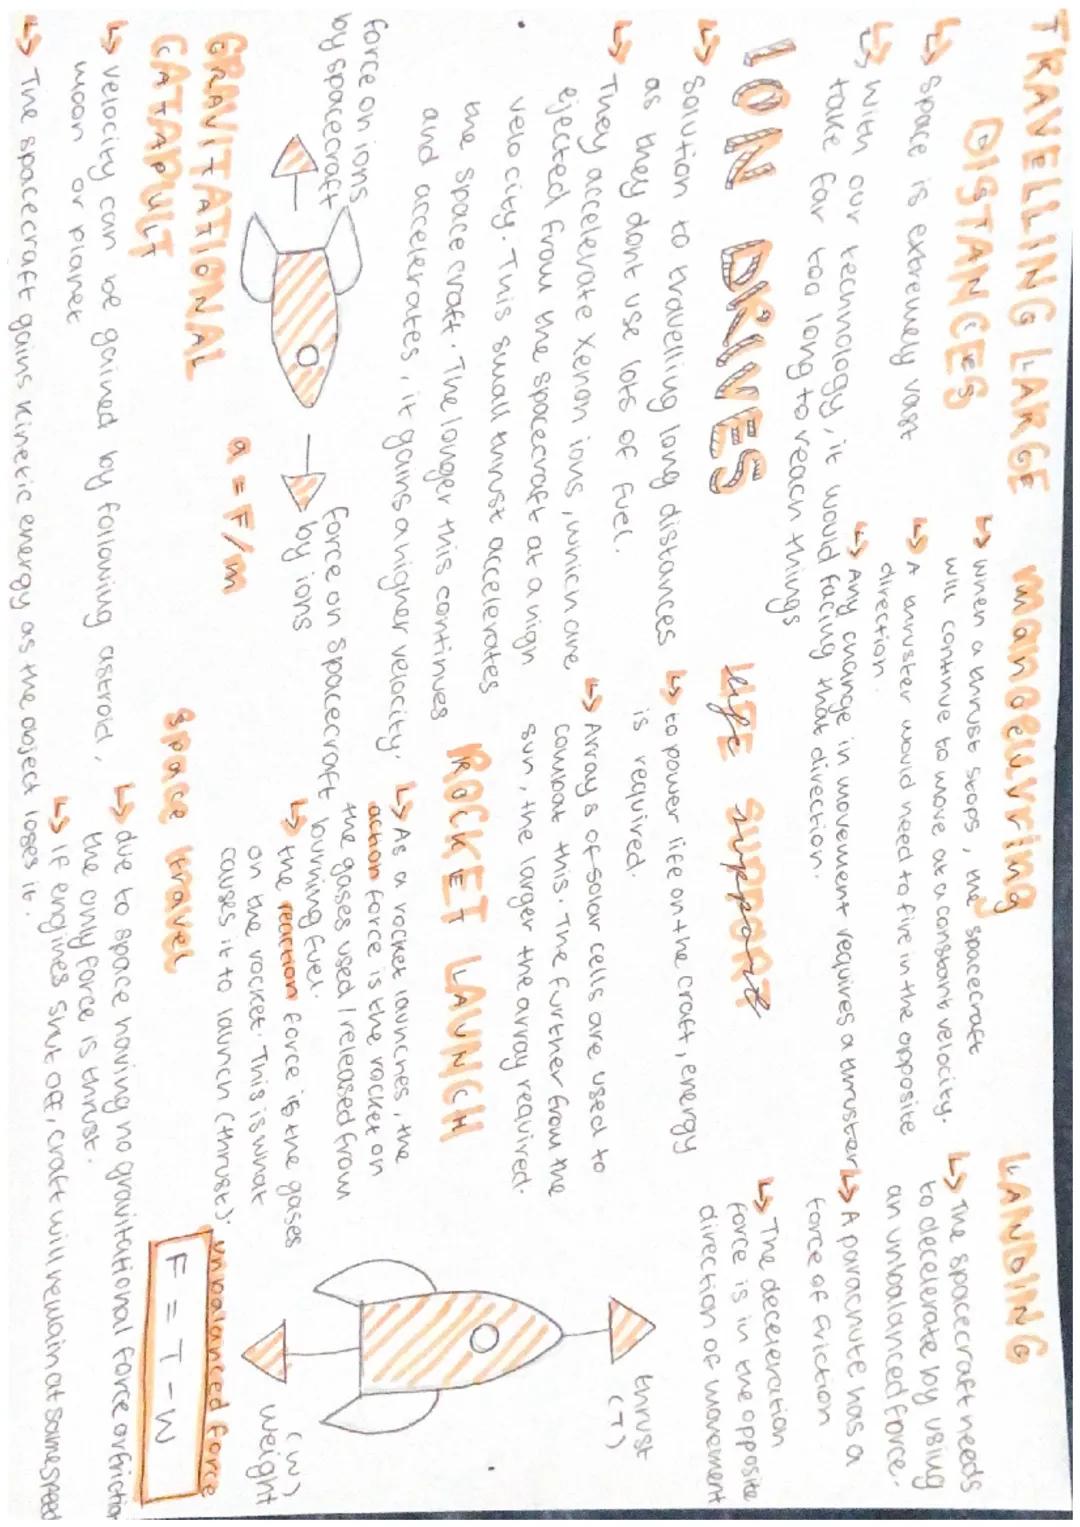 TRAVELLING LARGE
DISTANCES
↳ space is extremely vast
↳ with our technology, it would
take far too long to reach things
ION DRIVES
↳ solution to travelling long distances
as they dont use lots of fuel.
↳ They accelerate xenon ions, which are
ejected from the spacecraft at a high
velocity. This small thrust accelerates
the space craft. The longer this continues
and accelerates, it gains a higher velocity.
force on ions
by spacecraft
force on spacecraft
by ions
a = F/m
GRAVITATIONAL
CATAPULT
↳ velocity can be gained by following astroid,
moon or planet
↳ The spacecraft gains kinetic energy as the object loses it.
manoeuvring
↳ when a thrust stops, the spacecraft
will continue to move at a constant velocity.
↳ A thruster would need to fire in the opposite
direction.
↳ Any change in movement requires a thruster
facing that direction.
LIFE SUPPORT
life support
↳ to power life on the craft, energy
is required.
↳ Arrays of solar cells are used to
combat this. The further from the
sun, the larger the array required.
ROCKET LAUNCH
↳ As a rocket launches, the
action force is the rocket on
the gases used / released from
burning fuel.
↳ the reaction force is the gases
on the rocket. This is what
causes it to launch (thrust).
space travel
↳ due to space having no gravitational force or friction
the only force is thrust.
↳ If engines shut off, craft will remain at same speed
LANDING
↳ The spacecraft needs
to decelerate by using
an unbalanced force.
↳ A parachute has a
force of friction
↳ The deceleration
force is in the opposite
direction of movement
thrust
(T)
(W)
weight
unbalanced force
F = T - W